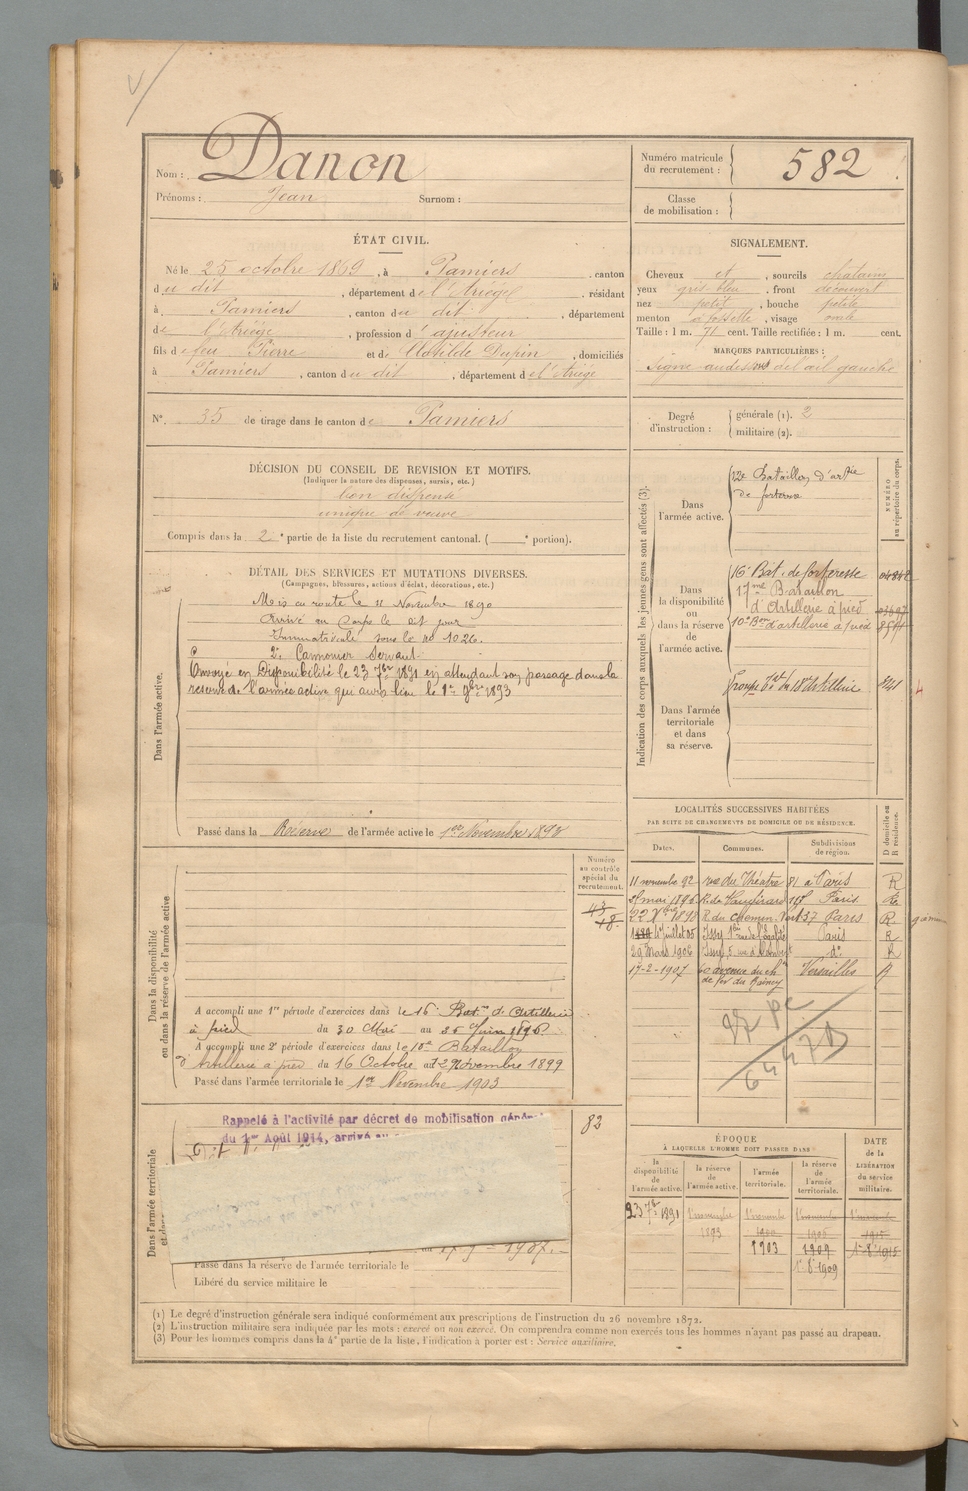 Nom : Danon
Prénoms : Jean Surnom :
Numéro matricule du recrutement : 582
Classe de mobilisation :
ÉTAT CIVIL.
Né le 25 octobre 1869, à Pamiers, canton
du dit, département de l'Ariège, résidant
à Pamiers, canton du dit, département
de l'Ariège, profession d'ajusteur
fils de feu Pierre et de Clotilde Dupin, domiciliés
à Pamiers, canton du dit, département de l'Ariège
N° 35 de tirage dans le canton de Pamiers
SIGNALEMENT.
Cheveux et, sourcils chatains
yeux gris bleu, front découvert
nez petit, bouche petite
menton à fossette, visage ovale
Taille : 1 m. 71 cent. Taille rectifiée : 1 m. cent.
MARQUES PARTICULIÈRES :
Signe au dessous de l'œil gauche
Degré d'instruction : générale (1). 2
militaire (2).
DÉCISION DU CONSEIL DE REVISION ET MOTIFS.
(Indiquer la nature des dispenses, sursis, etc.)
bon dispensé
unique de veuve
Compris dans la 2e partie de la liste du recrutement cantonal. ( e portion).
DÉTAIL DES SERVICES ET MUTATIONS DIVERSES.
(Campagnes, blessures, actions d'éclat, décorations, etc.)
Dans l'armée active.
Mis en route le 11 Novembre 1890
Arrivé au Corps le dit jour
Immatriculé sous le no 1026.
2e Cannonier Servant
Envoyé en Disponibilité le 23 7bre 1891 en attendant son passage dans la
réserve de l'armée active qui aura lieu le 1er 9bre 1893
Passé dans la Réserve de l'armée active le 1er Novembre 1893
Indication des corps auxquels les jeunes gens sont affectés (3).
NUMÉRO au répertoire du corps.
Dans l'armée active.
12e Bataillon d'artie
de forteresse
Dans la disponibilité ou dans la réserve de l'armée active.
16e Bat. de forteresse
17me Bataillon
d'Artillerie à pied
10e Bon d'artillerie à pied
Dans l'armée territoriale et dans sa réserve.
Groupe Tal du 18e d'Artillerie 841
LOCALITÉS SUCCESSIVES HABITÉES
PAR SUITE DE CHANGEMENTS DE DOMICILE OU DE RÉSIDENCE.
Dates. Communes. Subdivisions de région. D domicile ou R résidence.
11 novembre 92 rue du Théatre 81 à Paris R
mai 1896 R. de Vaugirard Paris R
22 Xbre 1898 R. du Chemin Vert 137 Paris R
Juillet 05 Issy 1 rue de l'Egalité Paris R
29 Mars 1906 Issy 5 rue do R
17-2-1907 60 avenue du ch. Versailles R
de fer du Raincy
Dans la disponibilité ou dans la réserve de l'armée active
Numéro au contrôle spécial du recrutement.
A accompli une 1re période d'exercices dans le 16e Baton d'Artillerie
à pied du 30 Mai au 26 Juin 1896
A accompli une 2e période d'exercices dans le 10e Bataillon
d'Artillerie à pied du 16 Octobre au 12 Novembre 1899
Passé dans l'armée territoriale le 1er Novembre 1903
Dans l'armée territoriale
82
Rappelé à l'activité par décret de mobilisation
du 1er Août 1914, arrivé au
Passé dans la réserve de l'armée territoriale le
Libéré du service militaire le
ÉPOQUE
À LAQUELLE L'HOMME DOIT PASSER DANS
la disponibilité de l'armée active. la réserve de l'armée active. l'armée territoriale. la réserve de l'armée territoriale. DATE de la LIBÉRATION du service militaire.
23 7bre 1891 1er novembre 1893
1903 1909
1er 8bre 1909
(1) Le degré d'instruction générale sera indiqué conformément aux prescriptions de l'instruction du 26 novembre 1872.
(2) L'instruction militaire sera indiquée par les mots : exercé ou non exercé. On comprendra comme non exercés tous les hommes n'ayant pas passé au drapeau.
(3) Pour les hommes compris dans la 4e partie de la liste, l'indication à porter est : Service auxiliaire.